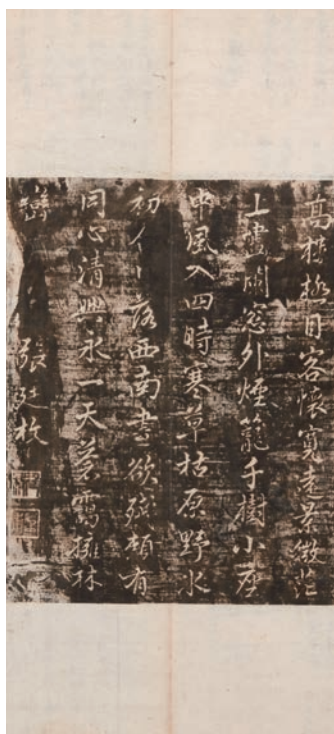 高樓極目客懷寬遠景微茫
上畫闌窓外煙籠千樹小座
中風入四時寒草枯原野水
初落西南書欲殘頼有
同心清興永一天暮靄擁林
巒 張廷枚